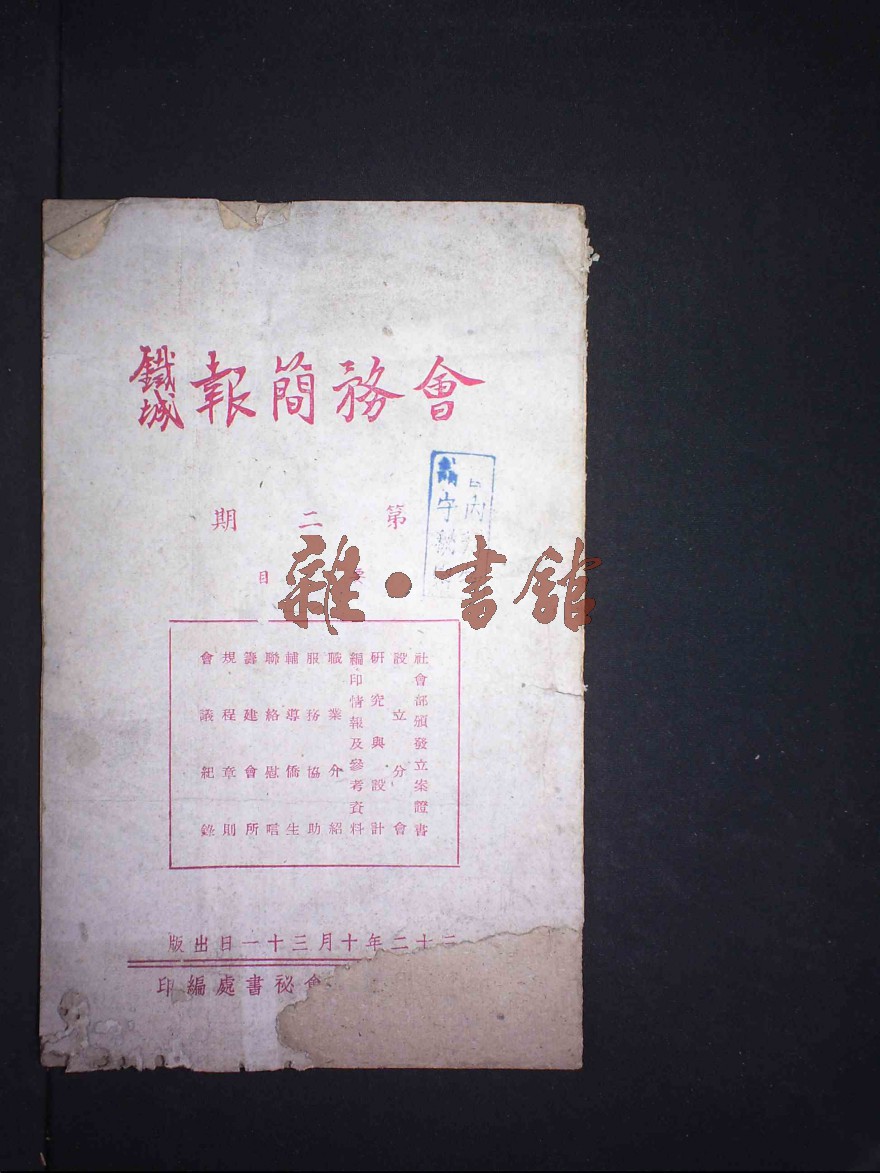 會務簡報
鐵城
第二期
目
社會部頒發立案證書
設立分會
研究與設計
編印情報及參考資料
職業介紹
服務協助
輔導僑生
聯絡慰唁
籌建會所
規程章則
會議紀錄
二十二年十月三十一日出版
會祕書處編印
雜·書館
內
字號